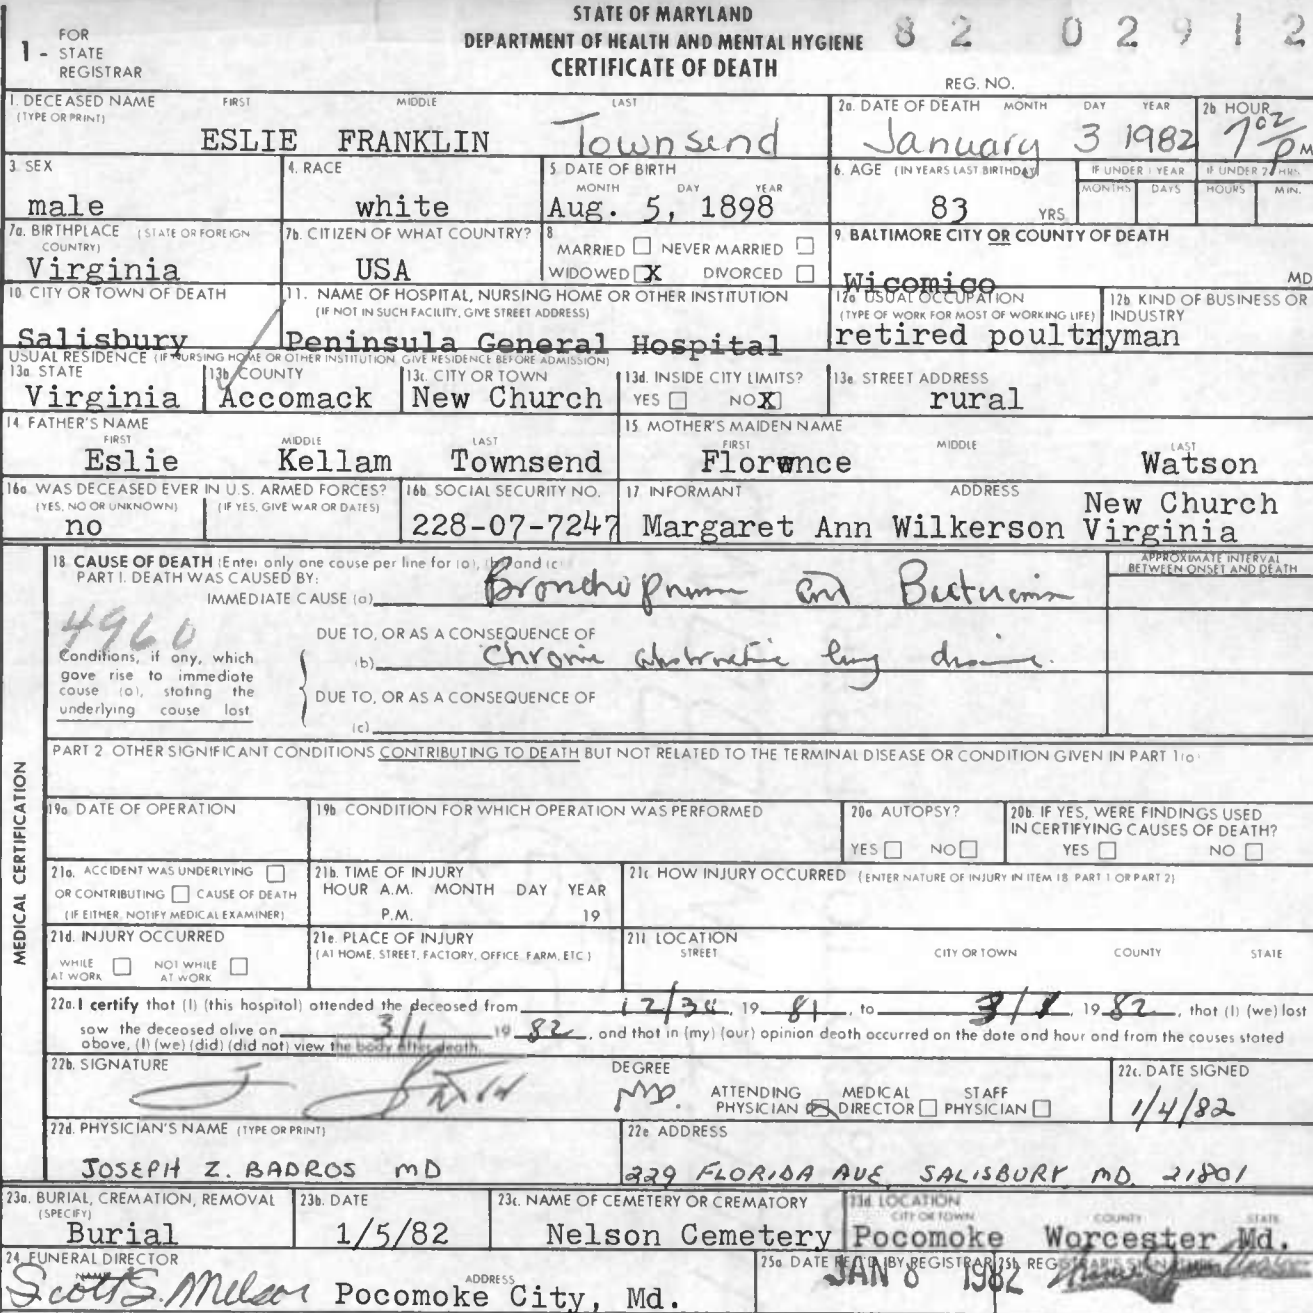 STATE OF MARYLAND
DEPARTMENT OF HEALTH AND MENTAL HYGIENE
CERTIFICATE OF DEATH
1 - FOR STATE REGISTRAR
82 02912
REG. NO.
1. DECEASED NAME (TYPE OR PRINT) FIRST MIDDLE LAST
ESLIE FRANKLIN Townsend
2a. DATE OF DEATH MONTH DAY YEAR
January 3 1982
2b. HOUR
7 02 P M
3. SEX
male
4. RACE
white
5. DATE OF BIRTH MONTH DAY YEAR
Aug. 5, 1898
6. AGE (IN YEARS LAST BIRTHDAY)
83 YRS.
IF UNDER 1 YEAR MONTHS DAYS
IF UNDER 24 HRS. HOURS MIN.
7a. BIRTHPLACE (STATE OR FOREIGN COUNTRY)
Virginia
7b. CITIZEN OF WHAT COUNTRY?
USA
8. MARRIED NEVER MARRIED
WIDOWED X DIVORCED
9. BALTIMORE CITY OR COUNTY OF DEATH
Wicomico MD
10. CITY OR TOWN OF DEATH
Salisbury
11. NAME OF HOSPITAL, NURSING HOME OR OTHER INSTITUTION
(IF NOT IN SUCH FACILITY, GIVE STREET ADDRESS)
Peninsula General Hospital
12a USUAL OCCUPATION
(TYPE OF WORK FOR MOST OF WORKING LIFE)
12b. KIND OF BUSINESS OR INDUSTRY
retired poultryman
USUAL RESIDENCE (IF NURSING HOME OR OTHER INSTITUTION GIVE RESIDENCE BEFORE ADMISSION)
13a. STATE
Virginia
13b. COUNTY
Accomack
13c. CITY OR TOWN
New Church
13d. INSIDE CITY LIMITS?
YES NO X
13e. STREET ADDRESS
rural
14. FATHER'S NAME FIRST MIDDLE LAST
Eslie Kellam Townsend
15. MOTHER'S MAIDEN NAME FIRST MIDDLE LAST
Florence Watson
16a. WAS DECEASED EVER IN U.S. ARMED FORCES?
(YES, NO OR UNKNOWN) (IF YES, GIVE WAR OR DATES)
no
16b. SOCIAL SECURITY NO.
228-07-7247
17. INFORMANT ADDRESS
Margaret Ann Wilkerson New Church Virginia
MEDICAL CERTIFICATION
18. CAUSE OF DEATH (Enter only one cause per line for (a), (b) and (c)
PART I. DEATH WAS CAUSED BY:
IMMEDIATE CAUSE (a) and
APPROXIMATE INTERVAL BETWEEN ONSET AND DEATH
4960
DUE TO, OR AS A CONSEQUENCE OF
(b) Chronic obstructive lung disease.
Conditions, if any, which gave rise to immediate cause (a), stating the underlying cause last
DUE TO, OR AS A CONSEQUENCE OF
(c)
PART 2. OTHER SIGNIFICANT CONDITIONS CONTRIBUTING TO DEATH BUT NOT RELATED TO THE TERMINAL DISEASE OR CONDITION GIVEN IN PART 1(a)
19a. DATE OF OPERATION
19b. CONDITION FOR WHICH OPERATION WAS PERFORMED
20a. AUTOPSY?
YES NO
20b. IF YES, WERE FINDINGS USED IN CERTIFYING CAUSES OF DEATH?
YES NO
21a. ACCIDENT WAS UNDERLYING
OR CONTRIBUTING CAUSE OF DEATH
(IF EITHER, NOTIFY MEDICAL EXAMINER)
21b. TIME OF INJURY
HOUR A.M. MONTH DAY YEAR
P.M. 19
21c. HOW INJURY OCCURRED (ENTER NATURE OF INJURY IN ITEM 18 PART 1 OR PART 2)
21d. INJURY OCCURRED
WHILE AT WORK NOT WHILE AT WORK
21e. PLACE OF INJURY
(AT HOME, STREET, FACTORY, OFFICE, FARM, ETC.)
21f. LOCATION
STREET CITY OR TOWN COUNTY STATE
22a. I certify that (I) (this hospital) attended the deceased from 12/30, 19 81, to 1, 19 82, that (I) (we) last
saw the deceased alive on 3/1 19 82, and that in (my) (our) opinion death occurred on the date and hour and from the causes stated
above, (I) (we) (did) (did not) view the body after death.
22b. SIGNATURE
DEGREE
MD.
ATTENDING PHYSICIAN MEDICAL DIRECTOR STAFF PHYSICIAN
22c. DATE SIGNED
1/4/82
22d. PHYSICIAN'S NAME (TYPE OR PRINT)
JOSEPH Z. BADROS MD
22e ADDRESS
229 FLORIDA AVE, SALISBURY, MD. 21801
23a. BURIAL, CREMATION, REMOVAL (SPECIFY)
Burial
23b. DATE
1/5/82
23c. NAME OF CEMETERY OR CREMATORY
Nelson Cemetery
23d. LOCATION CITY OR TOWN COUNTY STATE
Pocomoke Worcester Md.
24. FUNERAL DIRECTOR NAME ADDRESS
Scott S. Melson Pocomoke City, Md.
25a. DATE REC'D. BY REGISTRAR
JAN 8 1982
25b. REGISTRAR'S SIGNATURE